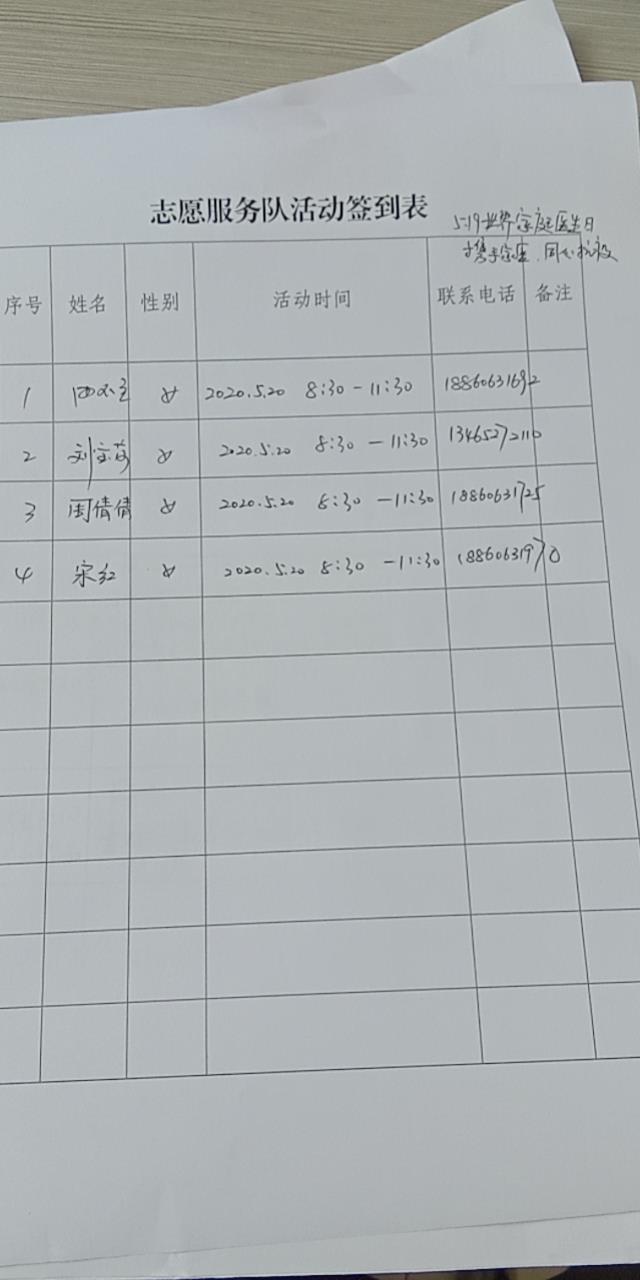 志愿服务队活动签到表
5.19世界家庭医生日
携手家医.同心抗疫
序号 姓名 性别 活动时间 联系电话 备注
1 女 2020.5.20 8:30-11:30 18860631692
2 刘 女 2020.5.20 8:30-11:30 13465272110
3 闫倩倩 女 2020.5.20 8:30-11:30 18860631725
4 宋红 女 2020.5.20 8:30-11:30 18860631970